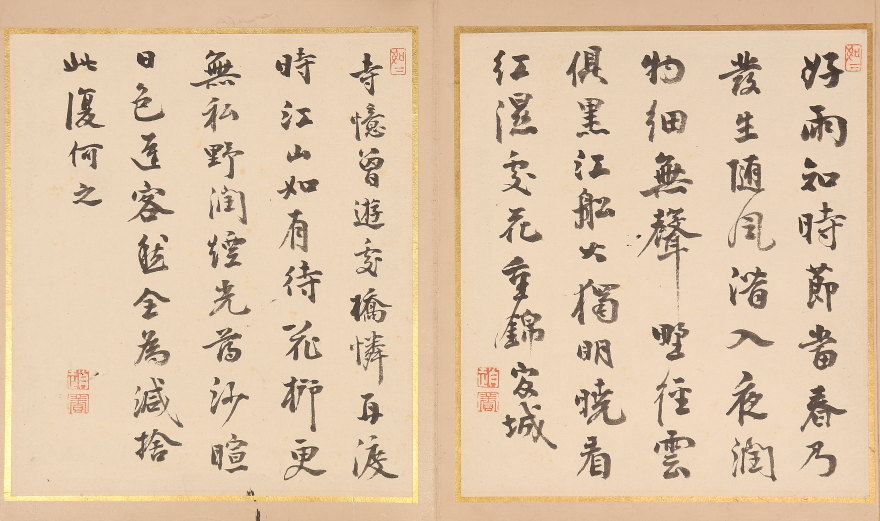 好雨知時節當春乃
發生随風潛入夜潤
物細無聲野徑雲
俱黑江船火獨明曉看
紅濕處花重錦官城
寺憶曾遊處橋憐再渡
時江山如有待花柳更
無私野潤煙光薄沙暄
日色遲客愁全為減捨
此復何之